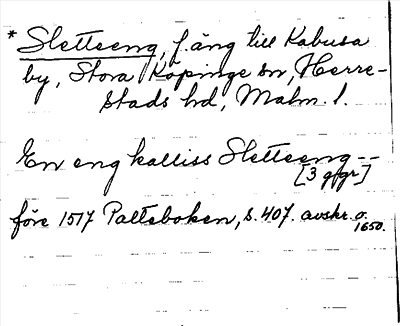 * Sletteeng, f. äng till Kabusa
by, Stora Köpinge sn, Herre-
stads hd, Malm. l.
En eng kalliss Sletteeng --
[3 ggr]
före 1517 Palteboken, s. 407. avskr. o.
1650.